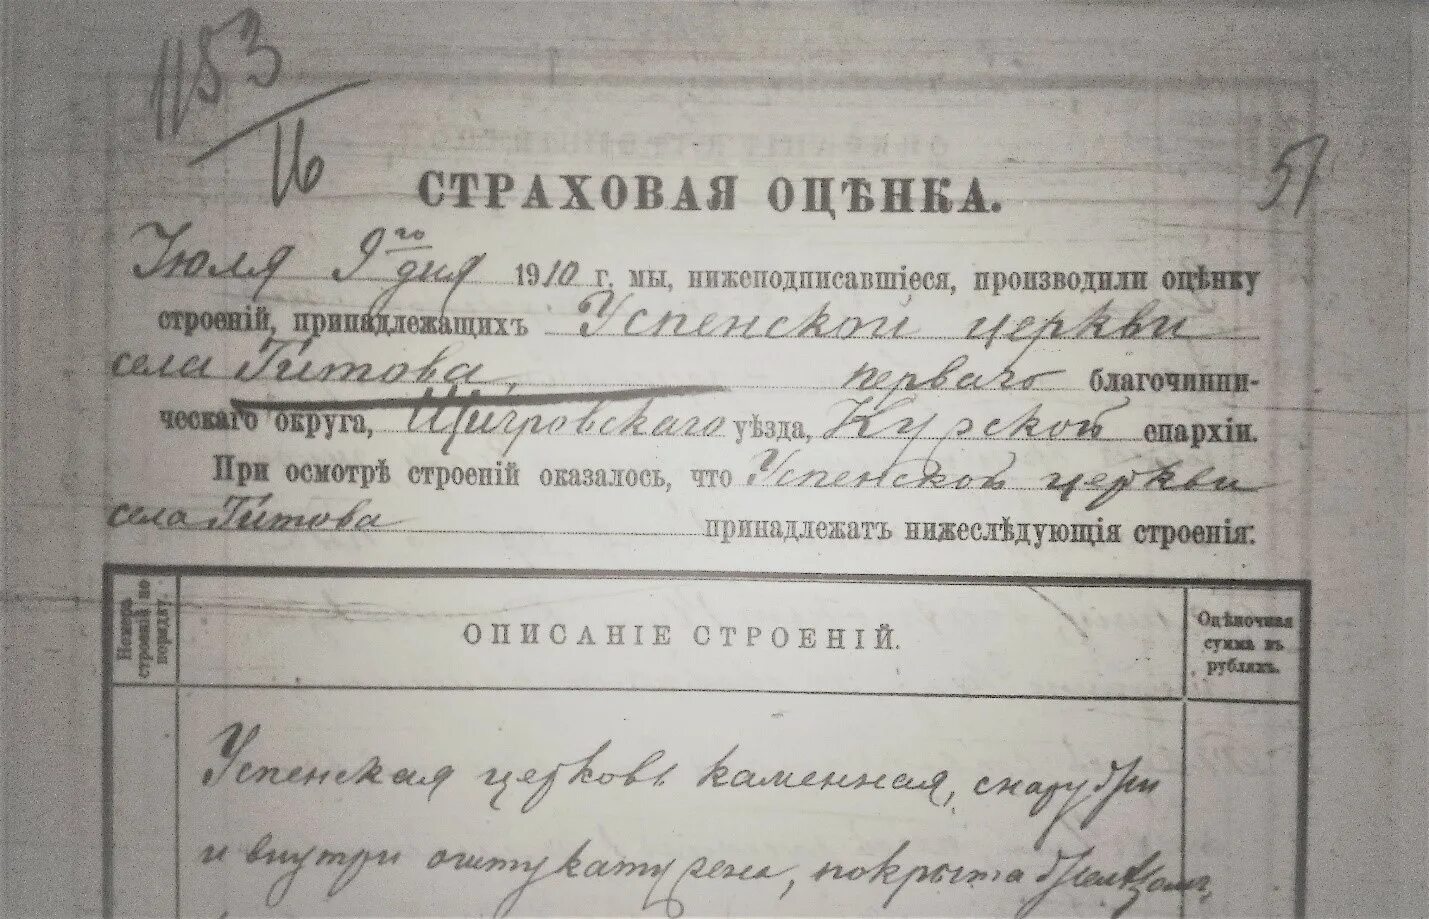 1153
16
57
СТРАХОВАЯ ОЦѢНКА.
Іюля 9го дня 1910 г. мы, нижеподписавшіеся, производили оцѣнку
строеній, принадлежащихъ Успенской церкви
села Титова, перваго благочинни-
ческаго округа, Щигровскаго уѣзда, Курской епархіи.
При осмотрѣ строеній оказалось, что Успенской церкви
села Титова принадлежатъ нижеслѣдующія строенія:
Номеръ строеній по порядку.
ОПИСАНІЕ СТРОЕНІЙ.
Оцѣночная сумма въ рубляхъ.
Успенская церковь каменная, снаружи
и внутри оштукатурена, покрыта желѣзомъ,